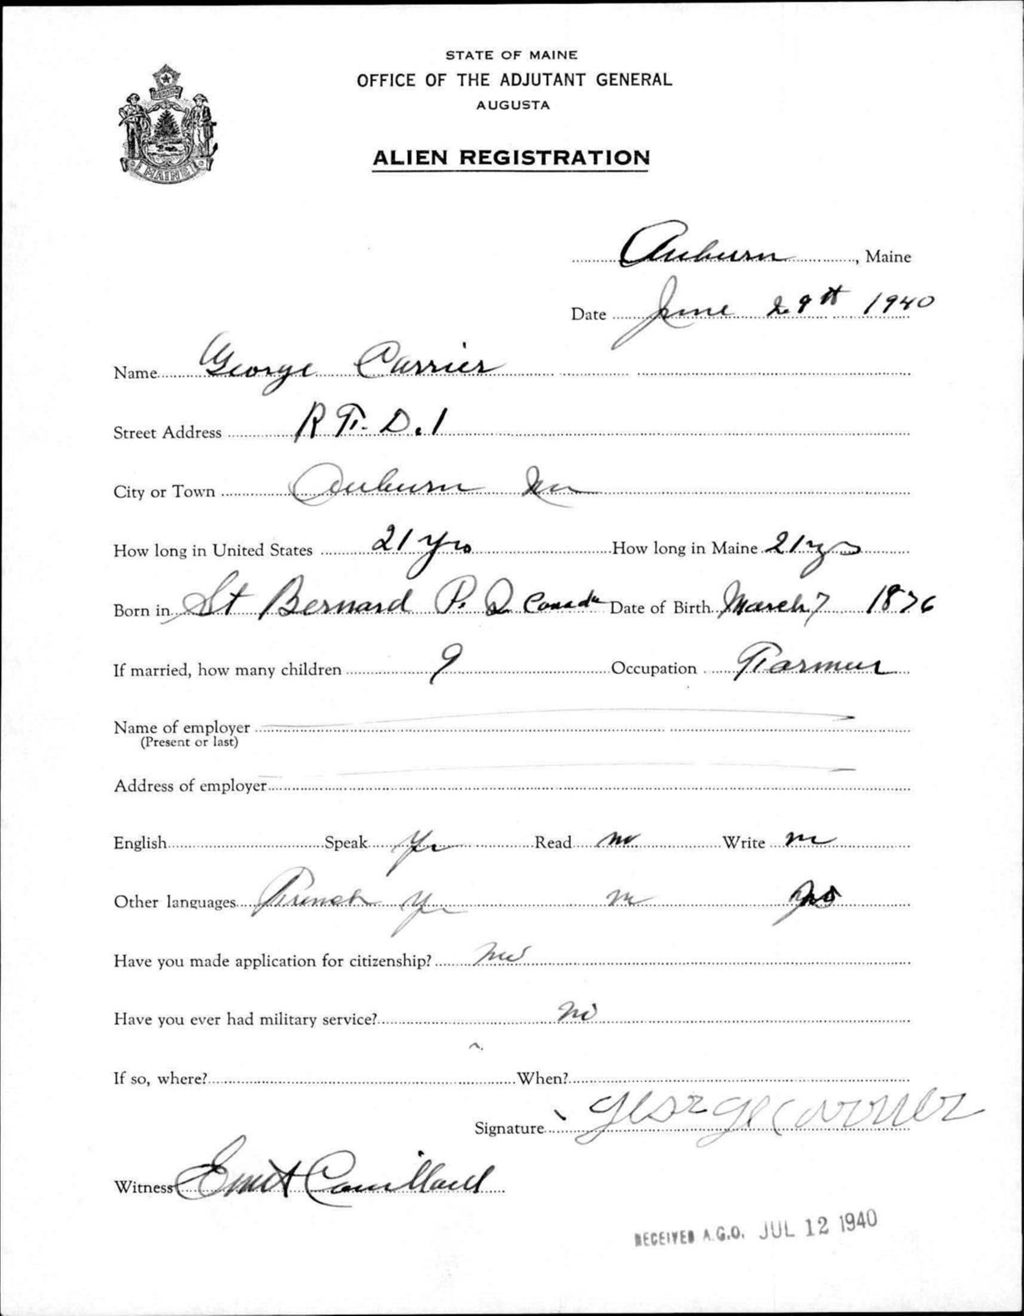 STATE OF MAINE
OFFICE OF THE ADJUTANT GENERAL
AUGUSTA
ALIEN REGISTRATION
MAINE
Auburn, Maine
Date June 29th 1940
Name George Carrier
Street Address R.F.D. 1
City or Town Auburn Me
How long in United States 21 yrs How long in Maine 21 yrs
Born in St Bernard P. Q Canada Date of Birth March 7 1876
If married, how many children 9 Occupation Farmer
Name of employer
(Present or last)
Address of employer
English Speak Yes Read no Write no
Other languages French Yes no no
Have you made application for citizenship? no
Have you ever had military service? no
If so, where? When?
Signature George Carrier
Witness
RECEIVED A.G.O. JUL 12 1940